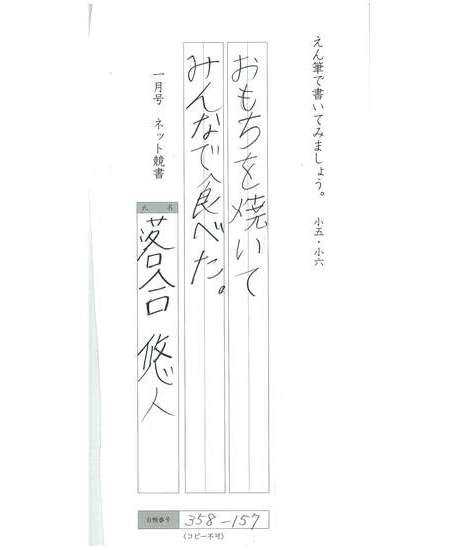 えん筆で書いてみましょう。 小五・小六
おもちを焼いて
みんなで食べた。
一月号 ネット競書
氏名
落合 悠人
台帳番号 358-157
(コピー不可)